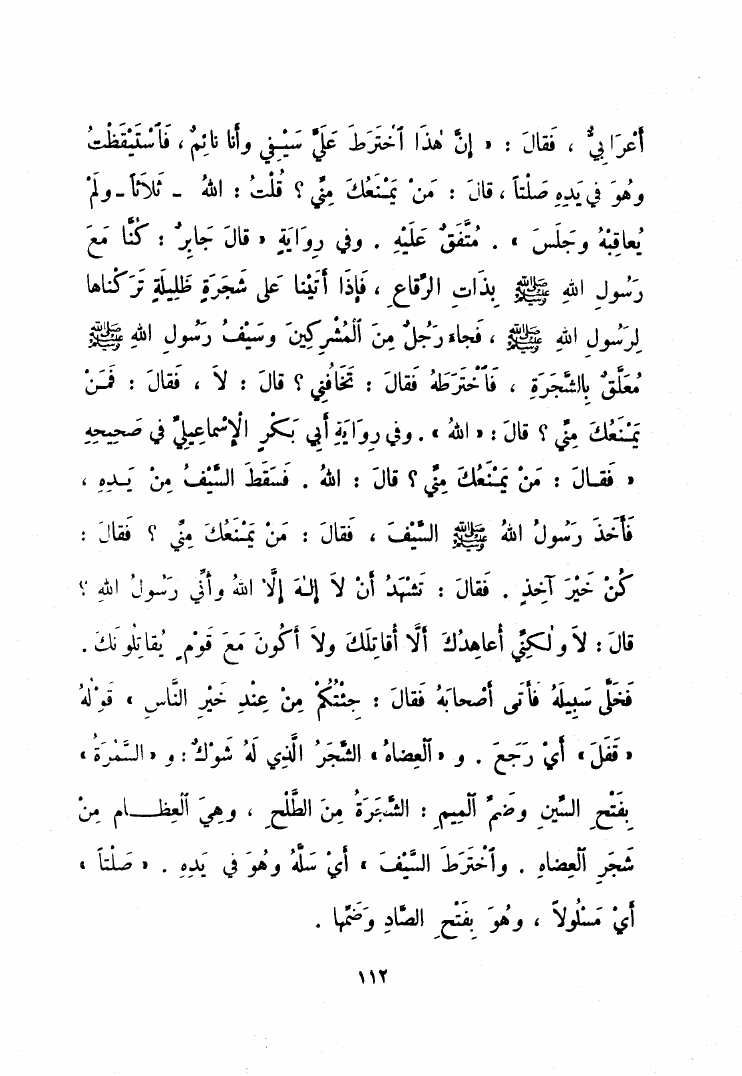 أَعْرَابِيٌّ ، فَقالَ : « إِنَّ هٰذَا ٱخْتَرَطَ عَلَيَّ سَيْفِي وأَنا نائِمٌ ، فَٱسْتَيْقَظْتُ
وهُوَ في يَدِهِ صَلْتاً ، قالَ : مَنْ يَمْنَعُكَ مِنِّي ؟ قُلْتُ : اللهُ - ثَلاَثاً - ولَمْ
يُعاقِبْهُ وجَلَسَ » . مُتَّفَقٌ عَلَيْهِ . وفي رِوَايَةٍ « قالَ جَابِرٌ : كُنَّا مَعَ
رَسُولِ اللهِ ﷺ بِذَاتِ الرِّقاعِ ، فَإِذَا أَتَيْنا عَلى شَجَرَةٍ ظَلِيلَةٍ تَرَكْناها
لِرَسُولِ اللهِ ﷺ ، فَجاءَ رَجُلٌ مِنَ ٱلْمُشْرِكِينَ وسَيْفُ رَسُولِ اللهِ ﷺ
مُعَلَّقٌ بِالشَّجَرَةِ ، فَٱخْتَرَطَهُ فَقالَ : تَخَافُنِي ؟ قالَ : لاَ ، فَقالَ : فَمَنْ
يَمْنَعُكَ مِنِّي ؟ قالَ : « اللهُ » . وفي رِوَايَةِ أَبِي بَكْرٍ الْإِسْماعِيلِيِّ في صَحِيحِهِ
« فَقالَ : مَنْ يَمْنَعُكَ مِنِّي ؟ قالَ : اللهُ . فَسَقَطَ السَّيْفُ مِنْ يَدِهِ ،
فَأَخَذَ رَسُولُ اللهِ ﷺ السَّيْفَ ، فَقالَ : مَنْ يَمْنَعُكَ مِنِّي ؟ فَقالَ :
كُنْ خَيْرَ آخِذٍ . فَقالَ : تَشْهَدُ أَنْ لاَ إِلٰهَ إِلَّا اللهُ وأَنِّي رَسُولُ اللهِ ؟
قالَ : لاَ ولٰكِنِّي أُعاهِدُكَ أَلَّا أُقاتِلَكَ ولاَ أَكُونَ مَعَ قَوْمٍ يُقاتِلُونَكَ .
فَخَلَّى سَبِيلَهُ فَأَتى أَصْحابَهُ فَقالَ : جِئْتُكُمْ مِنْ عِنْدِ خَيْرِ النَّاسِ » قَوْلُهُ
« قَفَلَ » أَيْ رَجَعَ . و « ٱلْعِضاهُ » الشَّجَرُ الَّذِي لَهُ شَوْكٌ : و « السَّمْرَةُ »
بِفَتْحِ السِّينِ وضَمِّ ٱلْمِيمِ : الشَّجَرَةُ مِنَ الطَّلْحِ ، وهِيَ ٱلْعِظـــام مِنْ
شَجَرِ ٱلْعِضاهِ . وٱخْتَرَطَ السَّيْفَ » أَيْ سَلَّهُ وهُوَ في يَدِهِ . « صَلْتاً »
أَيْ مَسْلُولاً ، وهُوَ بِفَتْحِ الصَّادِ وَضَمِّها .
١١٢